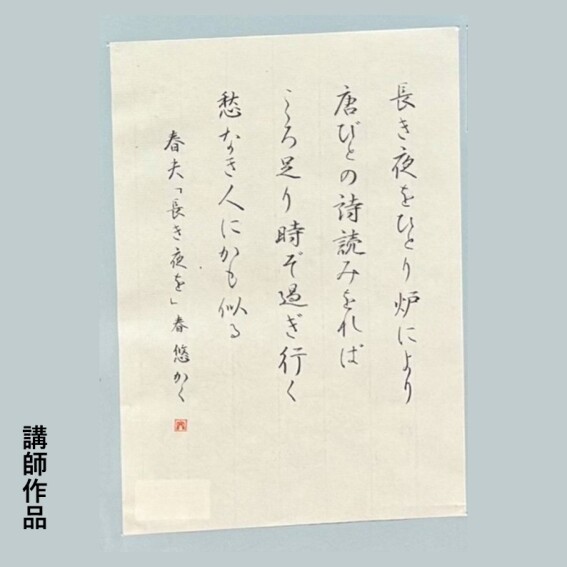 長き夜をひとり炉により
唐びとの詩読みをれば
こゝろ足り時ぞ過ぎ行く
愁なき人にかも似る
春夫「長き夜を」春悠かく
講師作品